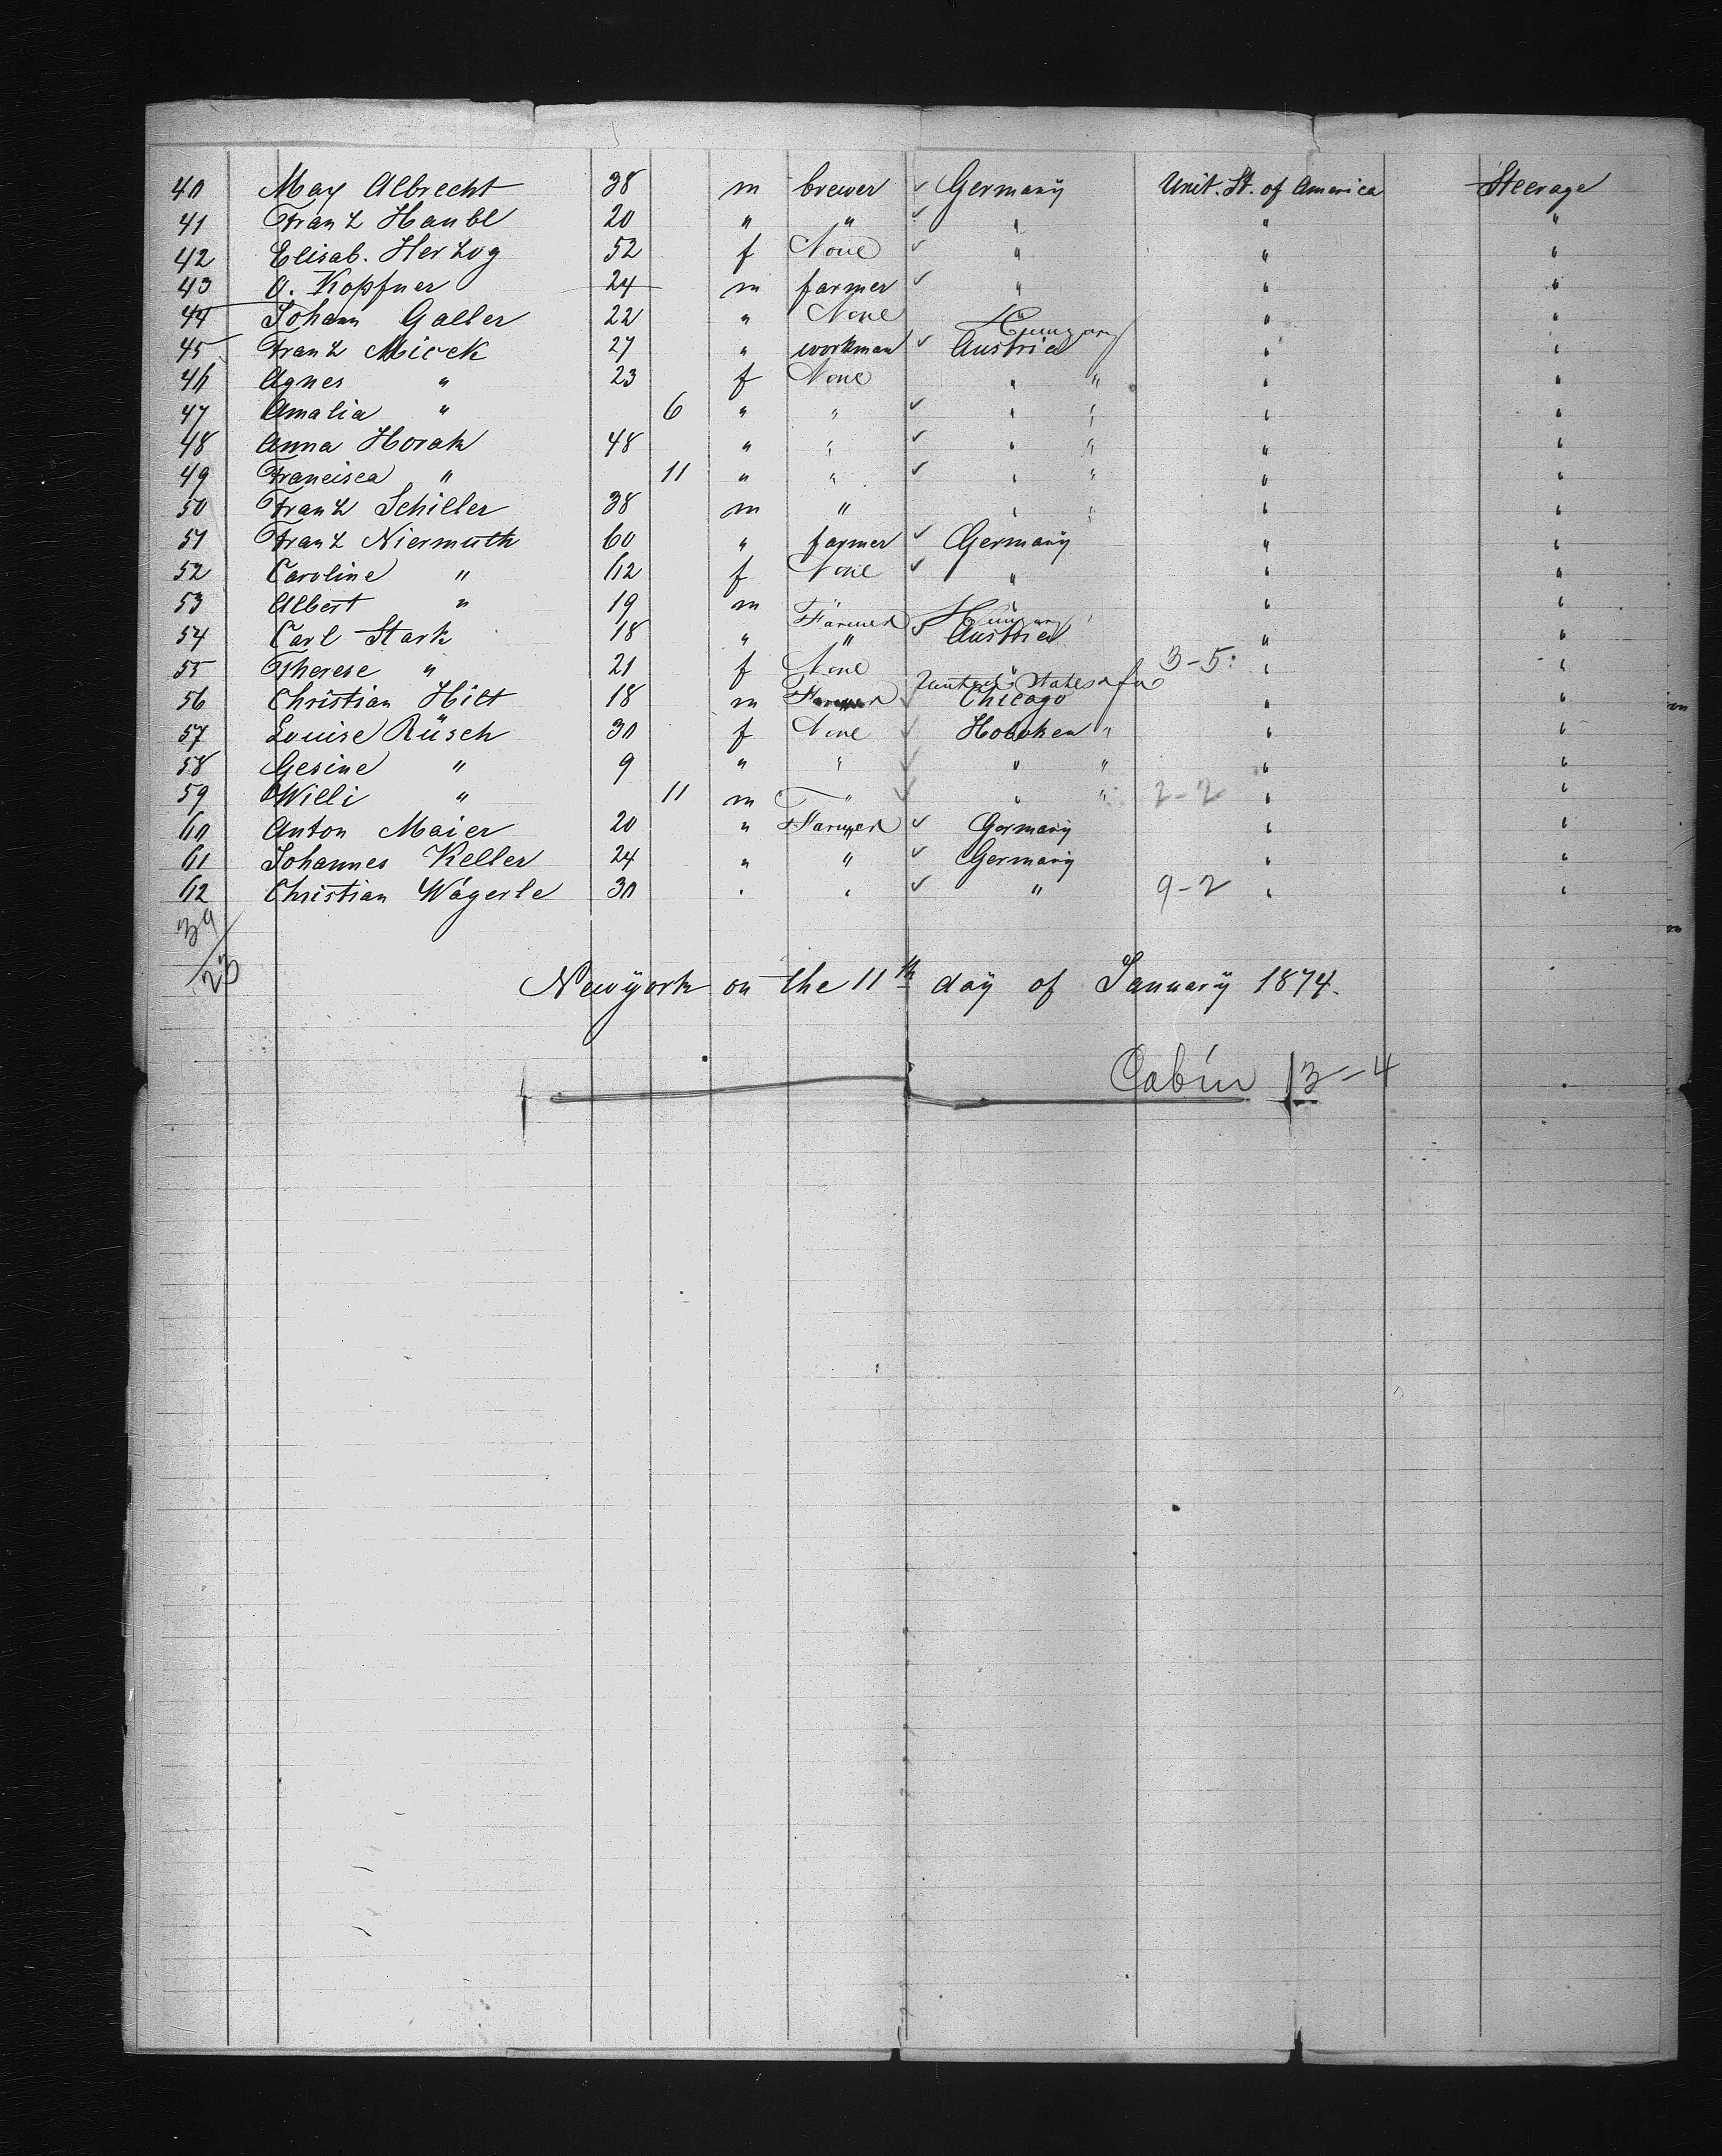 40 Max Albrecht 38 m brewer ✓ Germany Unit. St. of America Steerage
41 Franz Haubl 20 " " ✓ " " "
42 Elisab. Herzog 52 f None ✓ " " "
43 A. Kopfner 24 m farmer ✓ " " "
44 Johann Galler 22 " None " " "
45 Franz Micek 27 " workman ✓ Hungary Austria " "
46 Agnes " 23 f None " " " "
47 Amalia " 6 " " ✓ " " " "
48 Anna Horak 48 " " ✓ " " " "
49 Francisca " 11 " " ✓ " " " "
50 Franz Schiller 38 m " " " " "
51 Franz Niermuth 60 " farmer ✓ Germany " "
52 Caroline " 62 f None ✓ " " "
53 Albert " 19 m Farmer " "
54 Carl Stark 18 " " ✓ Hungary Austria " "
55 Therese " 21 f None " 3-5: " "
56 Christian Hilt 18 m Farmer ✓ United States of a Chicago " "
57 Louise Rüsch 30 f None ✓ Hoboken " " "
58 Gesine " 9 " " ✓ " " " "
59 Willi " 11 m " ✓ " " 2-2 " "
60 Anton Maier 20 " Farmer ✓ Germany " "
61 Johannes Keller 24 " " ✓ Germany " "
62 Christian Wägerle 30 " " ✓ " 9-2 " "
39
23
Newÿork on the 11th day of January 1874.
Cabin 13-4